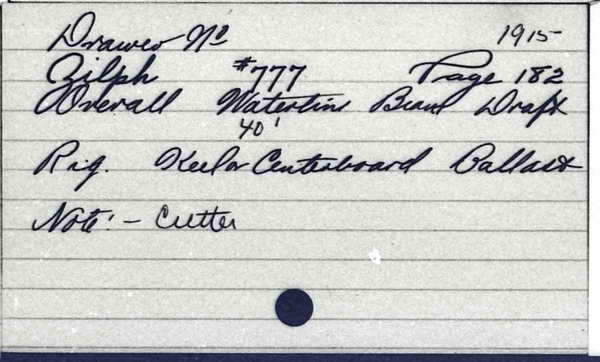 Drawer No 1915
Zilph #777 Page 182
Overall Waterline Beam Draft
40'
Rig. Keel or Centerboard Ballast
Note:- Cutter